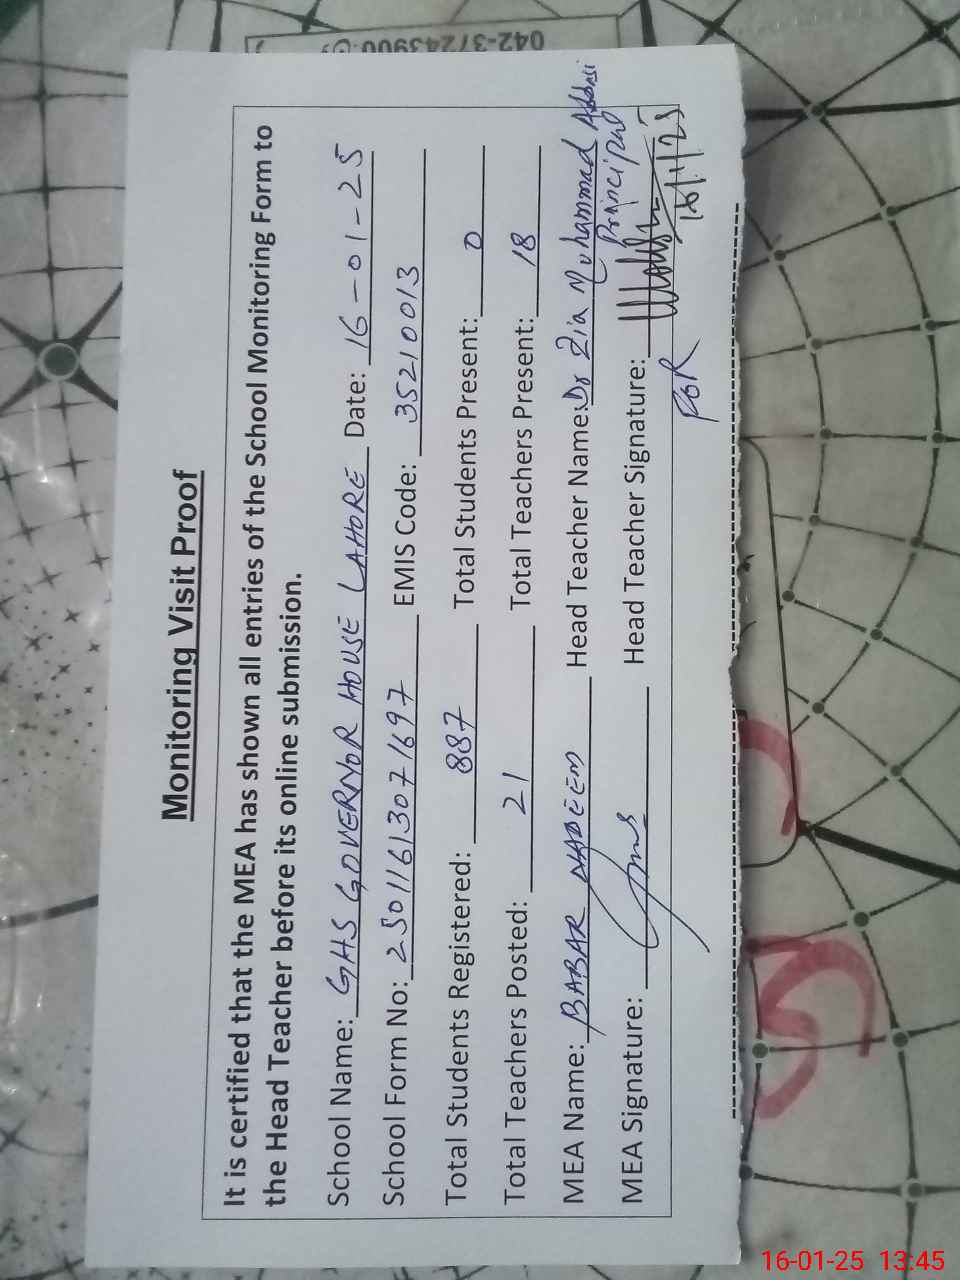 042-37243900
Monitoring Visit Proof
It is certified that the MEA has shown all entries of the School Monitoring Form to
the Head Teacher before its online submission.
School Name: GHS GOVERNOR HOUSE LAHORE Date: 16-01-25
School Form No: 25011613071697 EMIS Code: 35210013
Total Students Registered: 887 Total Students Present: 0
Total Teachers Posted: 21 Total Teachers Present: 18
MEA Name: BABAR NADEEM Head Teacher Name: Dr Zia Muhammad
Principal
MEA Signature: Head Teacher Signature:
16/1/25
For
16-01-25 13:45